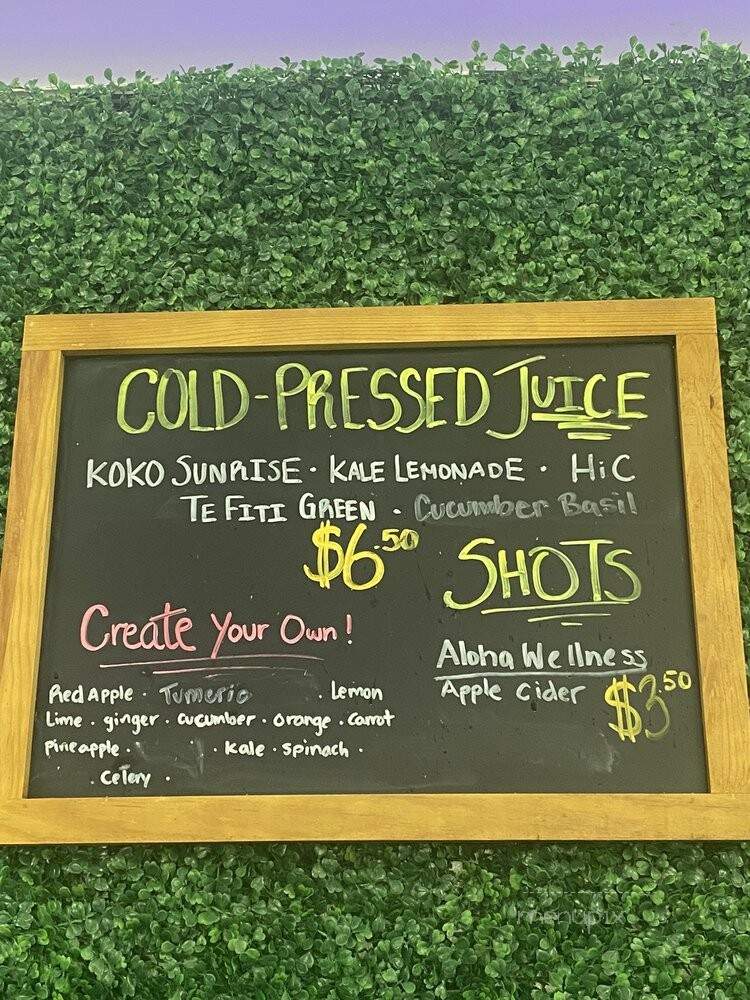 COLD-PRESSED JUICE
KOKO SUNRISE · KALE LEMONADE · HiC
TE FITI GREEN · Cucumber Basil
$6.50
SHOTS
Create Your Own!
Aloha Wellness
Apple Cider $3.50
Red Apple · Tumeric · Lemon
Lime · ginger · cucumber · orange · carrot
Pineapple · · Kale · spinach ·
· Celery ·
menupix